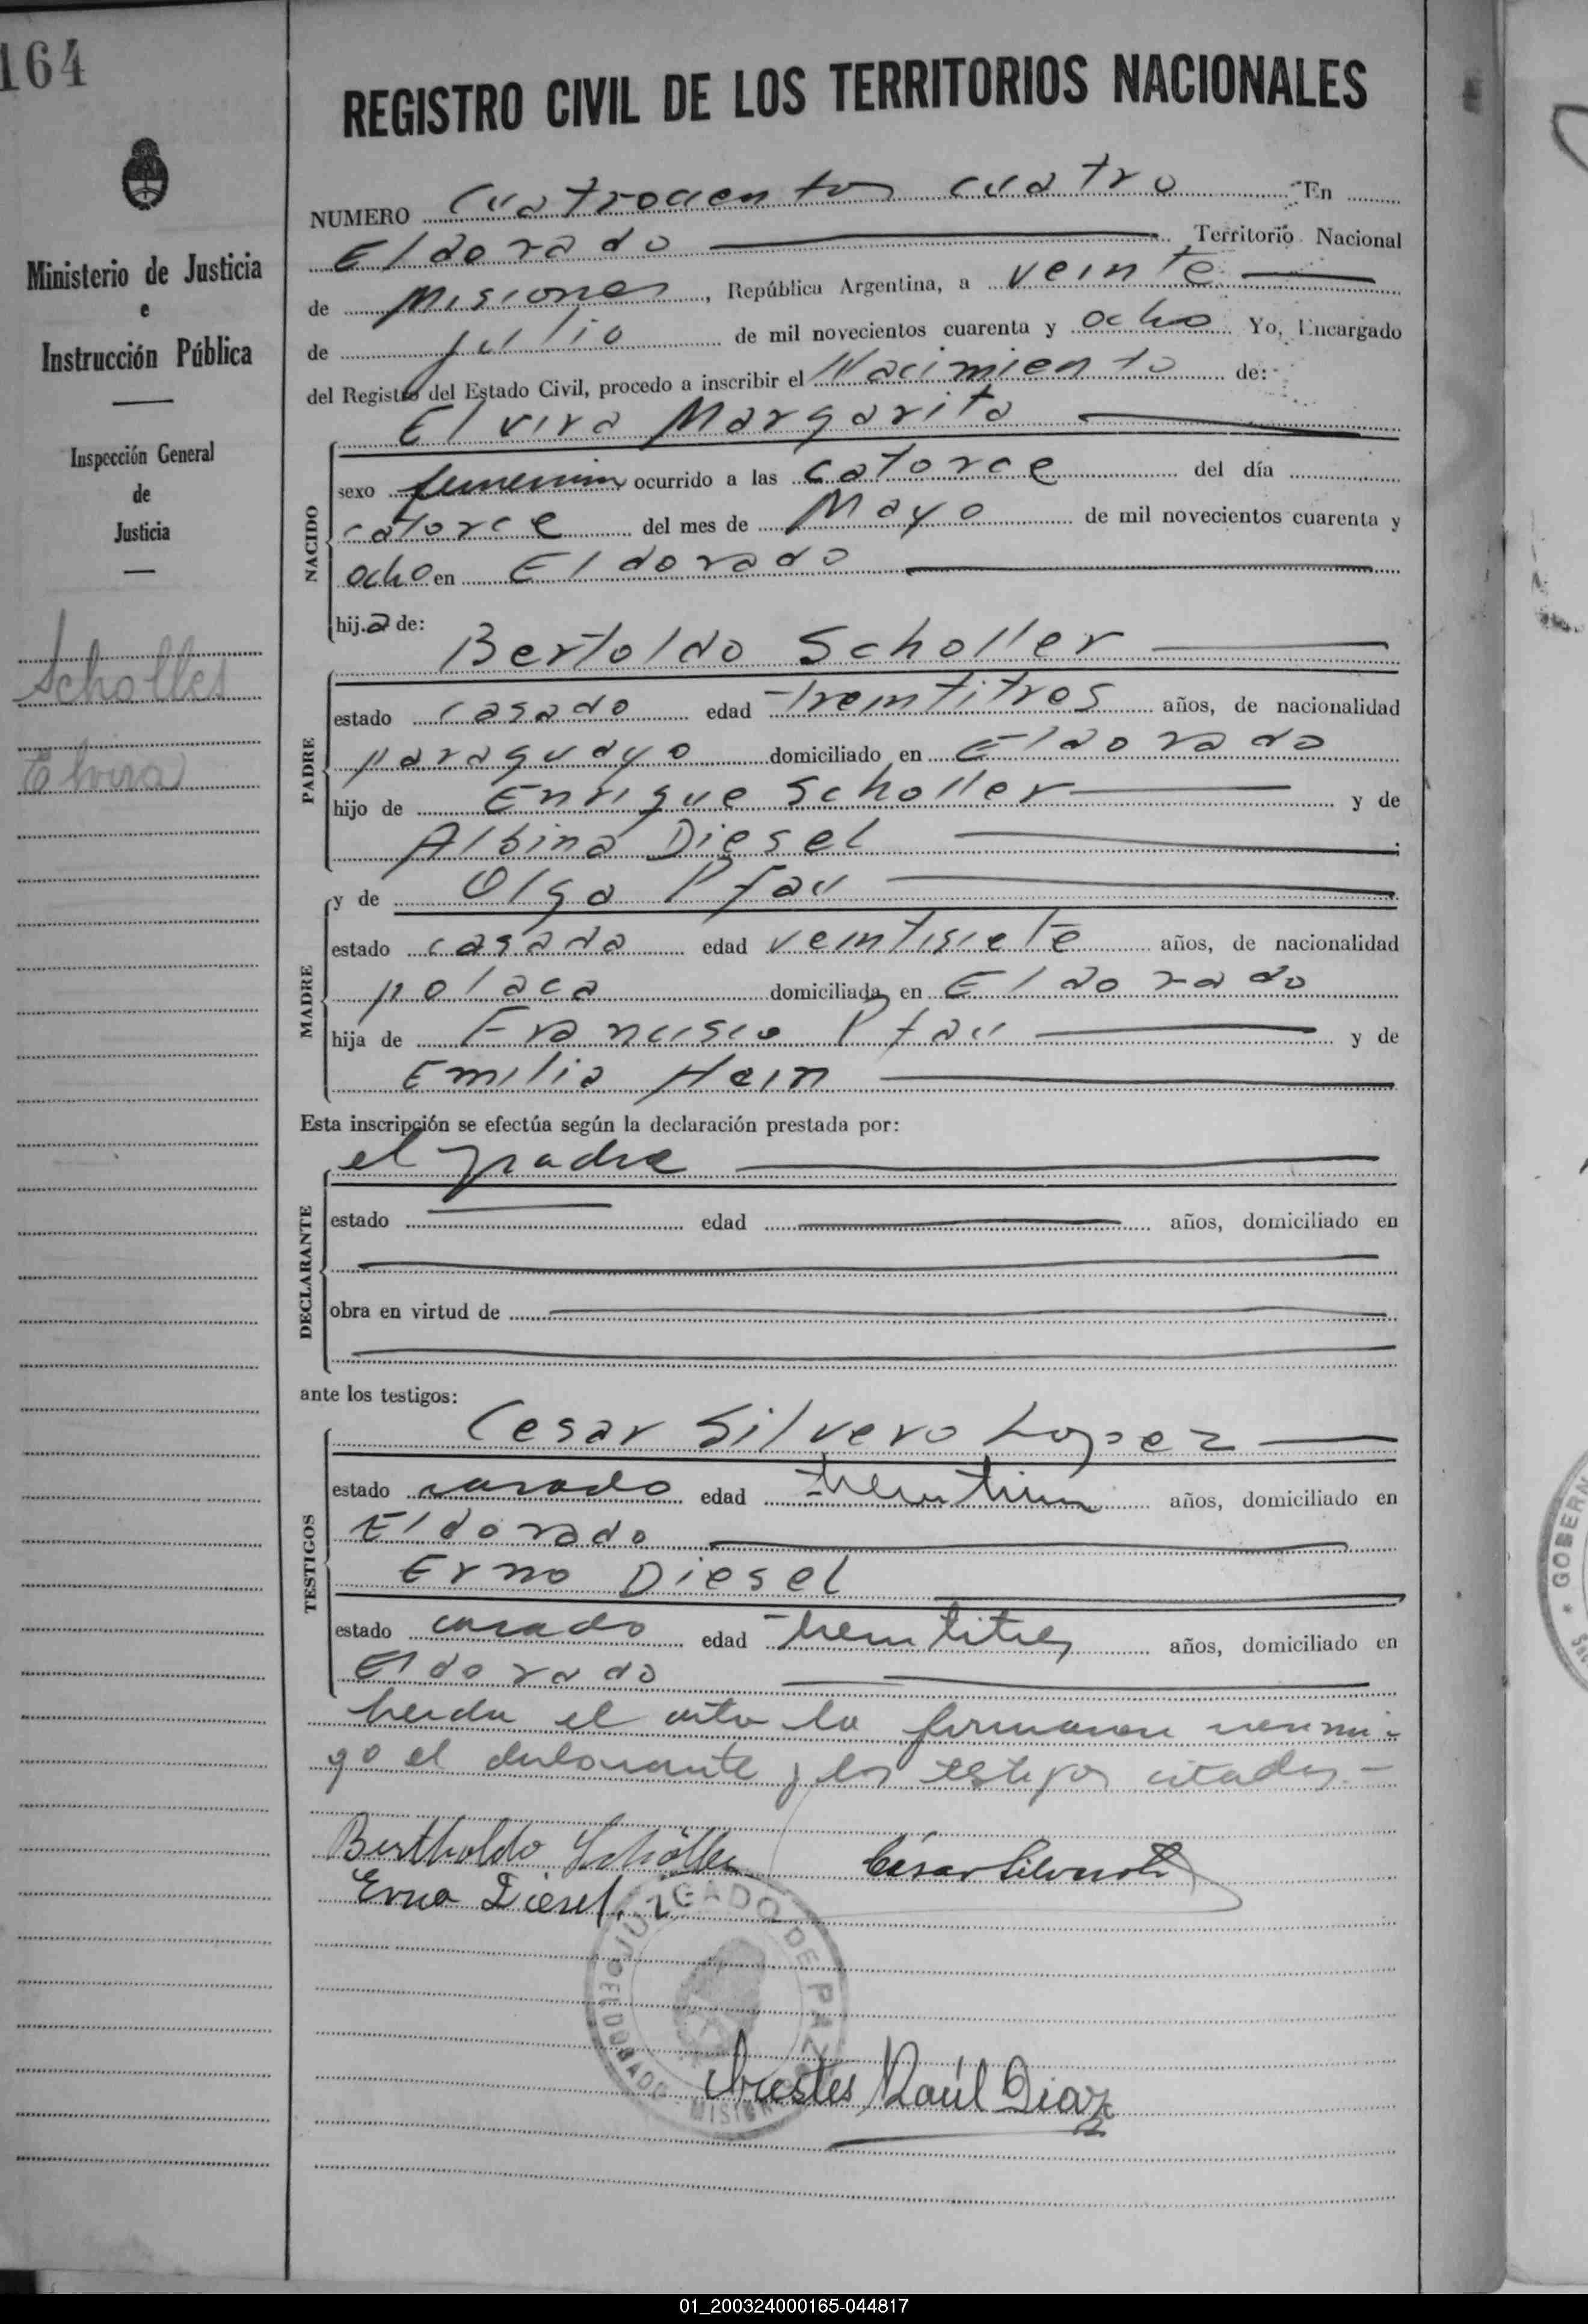 164
Ministerio de Justicia
e
Instrucción Pública
Inspección General
de
Justicia
Scholler
Elvira
REGISTRO CIVIL DE LOS TERRITORIOS NACIONALES
NUMERO Cuatrocientos cuatro En
Eldorado Territorio Nacional
de Misiones, República Argentina, a veinte
de julio de mil novecientos cuarenta y ocho Yo, Encargado
del Registro del Estado Civil, procedo a inscribir el Nacimiento de:
Elvira Margarita
NACIDO
sexo femenino ocurrido a las catorce del día
catorce del mes de Mayo de mil novecientos cuarenta y
ocho en Eldorado
hija de:
Bertoldo Scholler
PADRE
estado casado edad treintitres años, de nacionalidad
paraguayo domiciliado en Eldorado
hijo de Enrique Scholler y de
Albina Diesel
MADRE
y de Olga Pfau
estado casada edad veintisiete años, de nacionalidad
polaca domiciliada en Eldorado
hija de Francisco Pfau y de
Emilia Hein
Esta inscripción se efectúa según la declaración prestada por:
el padre
DECLARANTE
estado edad años, domiciliado en
obra en virtud de
ante los testigos:
Cesar Silvero Lopez
TESTIGOS
estado casado edad años, domiciliado en
Eldorado
Erno Diesel
estado casado edad treintitres años, domiciliado en
Eldorado
leida el acta la firmaron conmi-
go el declarante y los testigos citados.-
Bertholdo Schöller César Silvero
Erno Diesel.
JUZGADO DE PAZ
ELDORADO - MISIONES
Orestes Raúl Diaz
GOBERN
01_200324000165-044817